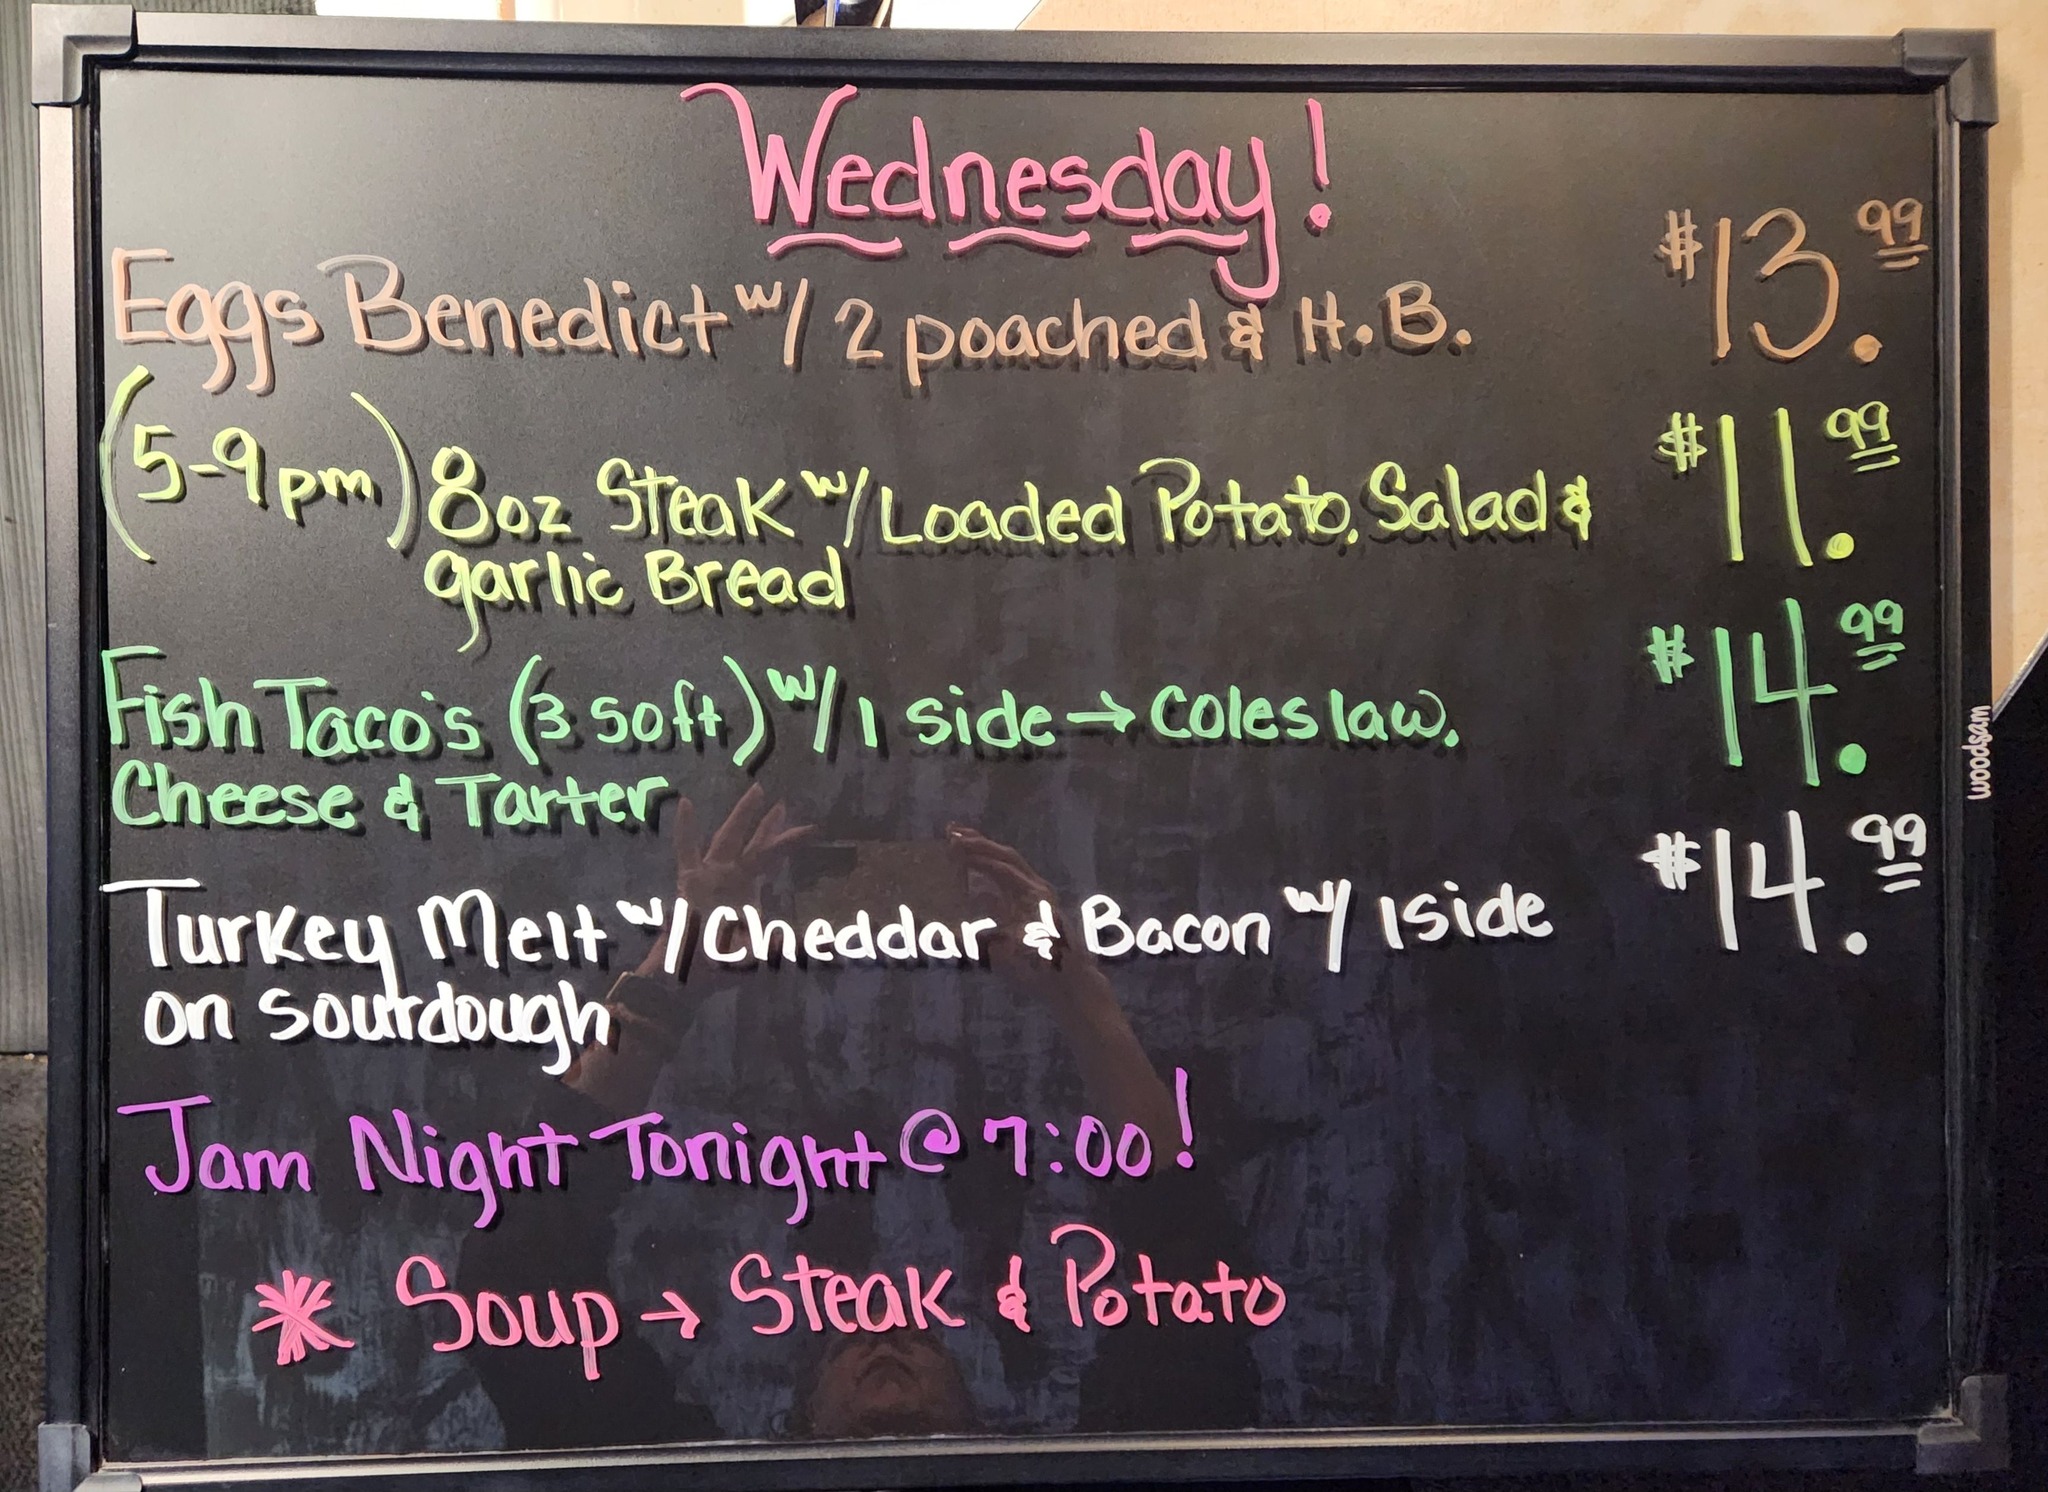 Wednesday!
Eggs Benedict w/ 2 poached & H.B. $13.99
(5-9pm) 8oz Steak w/ Loaded Potato, Salad & $11.99
garlic Bread
Fish Taco's (3 soft) w/ 1 side → Coleslaw, $14.99
Cheese & Tarter
Turkey Melt w/ Cheddar & Bacon w/ 1 side $14.99
on sourdough
Jam Night Tonight @ 7:00!
* Soup → Steak & Potato
woodsam